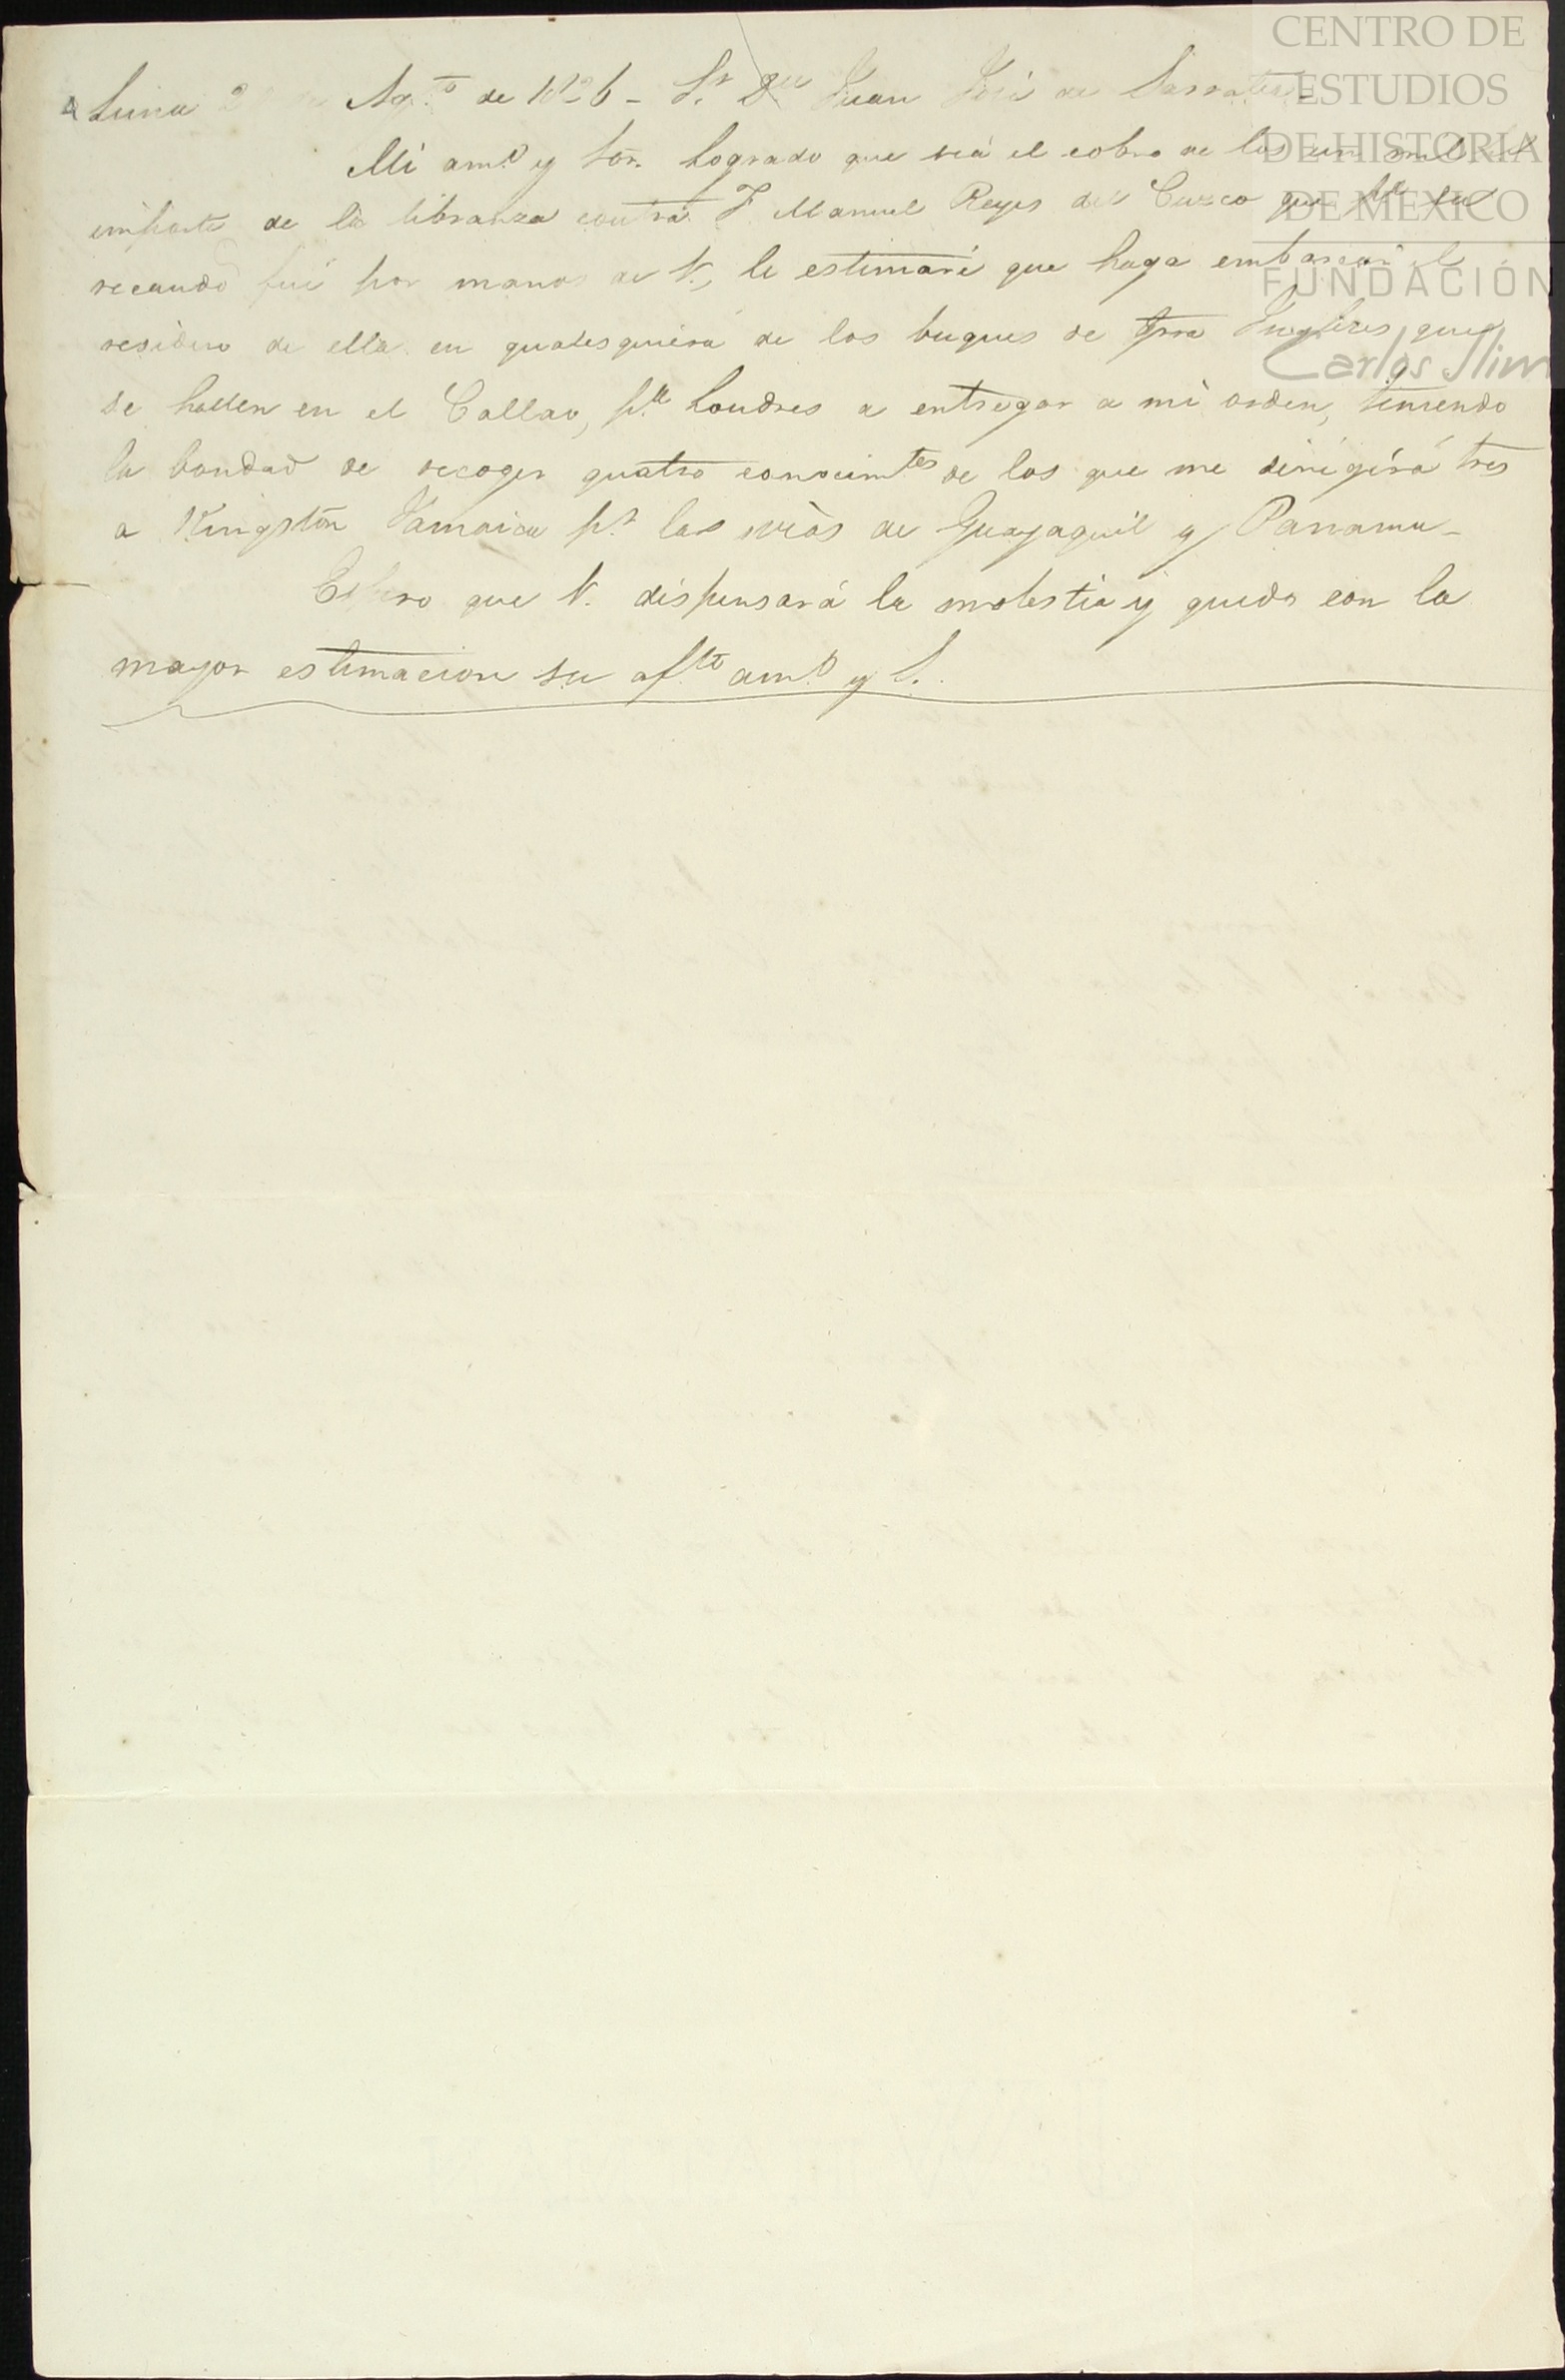 Lima 2 Ag.to de 1826 - S.r Dn Juan José de Sarratea -
Mi am.o y Sor. Logrado que sea el cobro de los un mil
importe de la libranza contra J. Manuel Reyes del Cuzco que p.a su
recaudo fué por manos de V., le estimaré que haga embarcar el
residuo de ella en qualesquiera de los buques de grra Yngleses que
se hallen en el Callao, p.a Londres a entregar a mi orden, teniendo
la bondad de recoger quatro conocimtos de los que me dirigirá tres
a Kingston Jamaica p.r las vias de Guayaquil y Panama -
Espero que V. dispensará la molestia y quedo con la
mayor estimacion su af.to am.o y S.
CENTRO DE
ESTUDIOS
DE HISTORIA
DE MEXICO
FUNDACIÓN
Carlos Slim